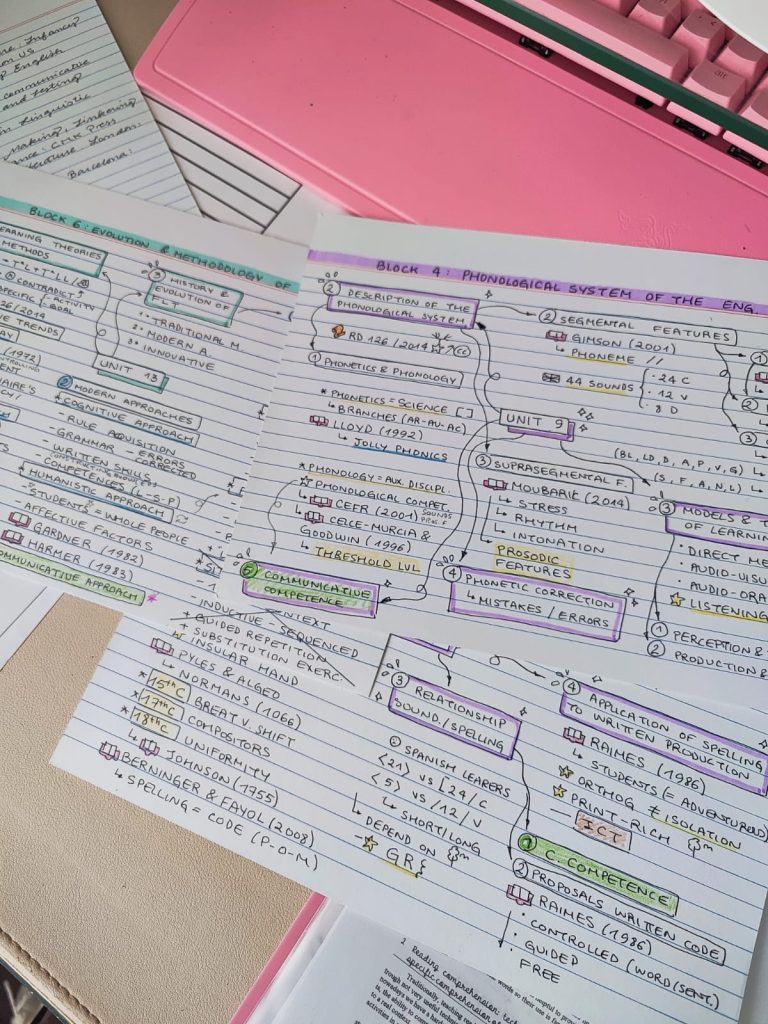 Infancy
on US
English
communicative
and testing
in Linguistic
Making, Tinkering
CMK Press
London:
Barcelona:
alt
BLOCK 6: EVOLUTION & METHODOLOGY OF
EARNING THEORIES
METHODS
+ T*L + T*LL /
CONTRADICT
SPECIFIC - ACTIVITY
GOAL
26/2014
VE TRENDS
(1972)
UNIT 13
③ HISTORY &
EVOLUTION OF
ELT
1• TRADITIONAL M
2• MODERN A.
3• INNOVATIVE
② MODERN APPROACHES
* COGNITIVE APPROACH
- RULE AQUISITION
- GRAMMAR - ERRORS
CORRECTED
- WRITTEN SKILLS
- COMPETENCES (L-S-P)
* HUMANISTIC APPROACH
- STUDENTS = WHOLE PEOPLE
- AFFECTIVE FACTORS
GARDNER (1982)
HARMER (1983)
COMMUNICATIVE APPROACH
BLOCK 4: PHONOLOGICAL SYSTEM OF THE ENG.
② DESCRIPTION OF THE
PHONOLOGICAL SYSTEM
RD 126/2014 (CC)
① PHONETICS & PHONOLOGY
* PHONETICS = SCIENCE [ ]
↳ BRANCHES (AR-AU-AC)
LLOYD (1992)
↳ JOLLY PHONICS
* PHONOLOGY = AUX. DISCIPL.
PHONOLOGICAL COMPET.
↳ CEFR (2001) SOUNDS
PROS. F.
↳ CELCE-MURCIA &
GOODWIN (1996)
↳ THRESHOLD LVL
⑤ COMMUNICATIVE
COMPETENCE
② SEGMENTAL FEATURES
GIMSON (2001)
↳ PHONEME //
44 SOUNDS { · 24 C
· 12 V
· 8 D
UNIT 9
(BL, LD, D, A, P, V, G)
(S, F, A, N, L)
③ SUPRASEGMENTAL F.
MOUBARIK (2014)
↳ STRESS
↳ RHYTHM
↳ INTONATION
PROSODIC
FEATURES
④ PHONETIC CORRECTION
↳ MISTAKES / ERRORS
③ MODELS & T
OF LEARNING
· DIRECT ME
· AUDIO-VISU
· AUDIO-ORA
LISTENING
① PERCEPTION &
② PRODUCTION &
- INDUCTIVE - SEQUENCED
+ GUIDED REPETITION
+ SUBSTITUTION EXERC.
INSULAR HAND
PYLES & ALGEO
↳ NORMANS (1066)
* 15thC GREAT V. SHIFT
* 17thC COMPOSITORS
* 18thC UNIFORMITY
↳ JOHNSON (1755)
BERNINGER & FAYOL (2008)
↳ SPELLING = CODE (P-O-M)
③ RELATIONSHIP
SOUND / SPELLING
SPANISH LEARERS
<21> VS [24/C
<5> VS /12/V
↳ SHORT/LONG
↳ DEPEND ON
GR}
④ APPLICATION OF SPELLING
TO WRITTEN PRODUCTION
RAIMES (1986)
↳ STUDENTS (= ADVENTURERS)
ORTHOG ≠ ISOLATION
PRINT-RICH
- ICT
① C. COMPETENCE
② PROPOSALS WRITTEN CODE
RAIMES (1986)
· CONTROLLED (WORD/SENT.)
· GUIDED
· FREE
2 Reading comprehension:
specific comprehension
Traditionally, teaching
trough not very useful
nowadays we have a
is, the ability to
to a real
activities in